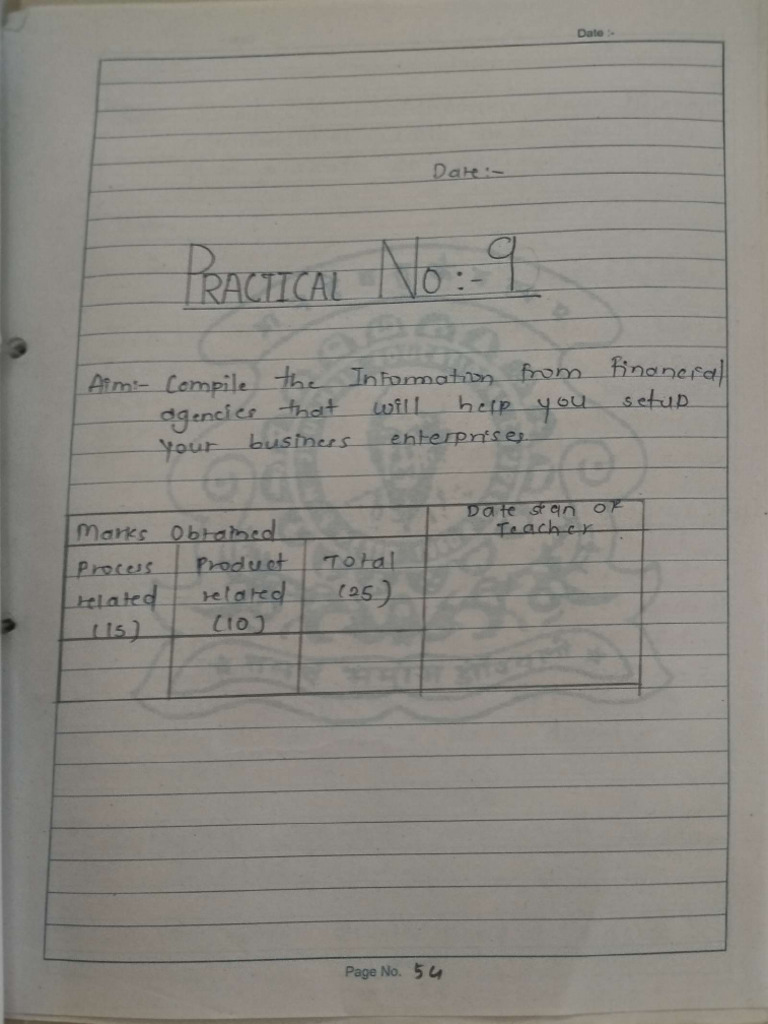 Date :-
Date:-
PRACTICAL No:- 9
Aim:- Compile the Information from financial
agencies that will help you setup
your business enterprises
Marks Obtained
Date sign of
Teacher
Process related (15)
Product related (10)
Total (25)
Page No. 54